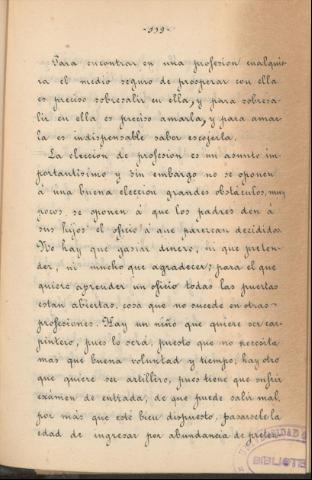 -339-
Para encontrar en una profesion cualquie-
ra el medio seguro de prosperar con ella
es preciso sobresalir en ella, y para sobresa-
lir en ella es preciso amarla, y para amar-
la es indispensable saber escojerla.
La eleccion de profesion es un asunto im-
portantísimo y sin embargo no se oponen
á una buena eleccion grandes obstáculos, muy
pocos se oponen á que los padres den á
sus hijos el oficio á que parezcan decididos.
No hay que gastar dinero, ni que preten-
der, ni mucho que agradecer; para el que
quiere aprender un oficio todas las puertas
estan abiertas, cosa que no sucede en otras
profesiones. Hay un niño que quiere ser car-
pintero, pues lo será, puesto que no necesita
mas que buena voluntad y tiempo; hay otro
que quiere ser artillero, pues tiene que sufrir
exámen de entrada, de que puede salir mal,
por más que esté bien dispuesto, pasarsele la
edad de ingresar por abundancia de preten-
BIBLIOTE